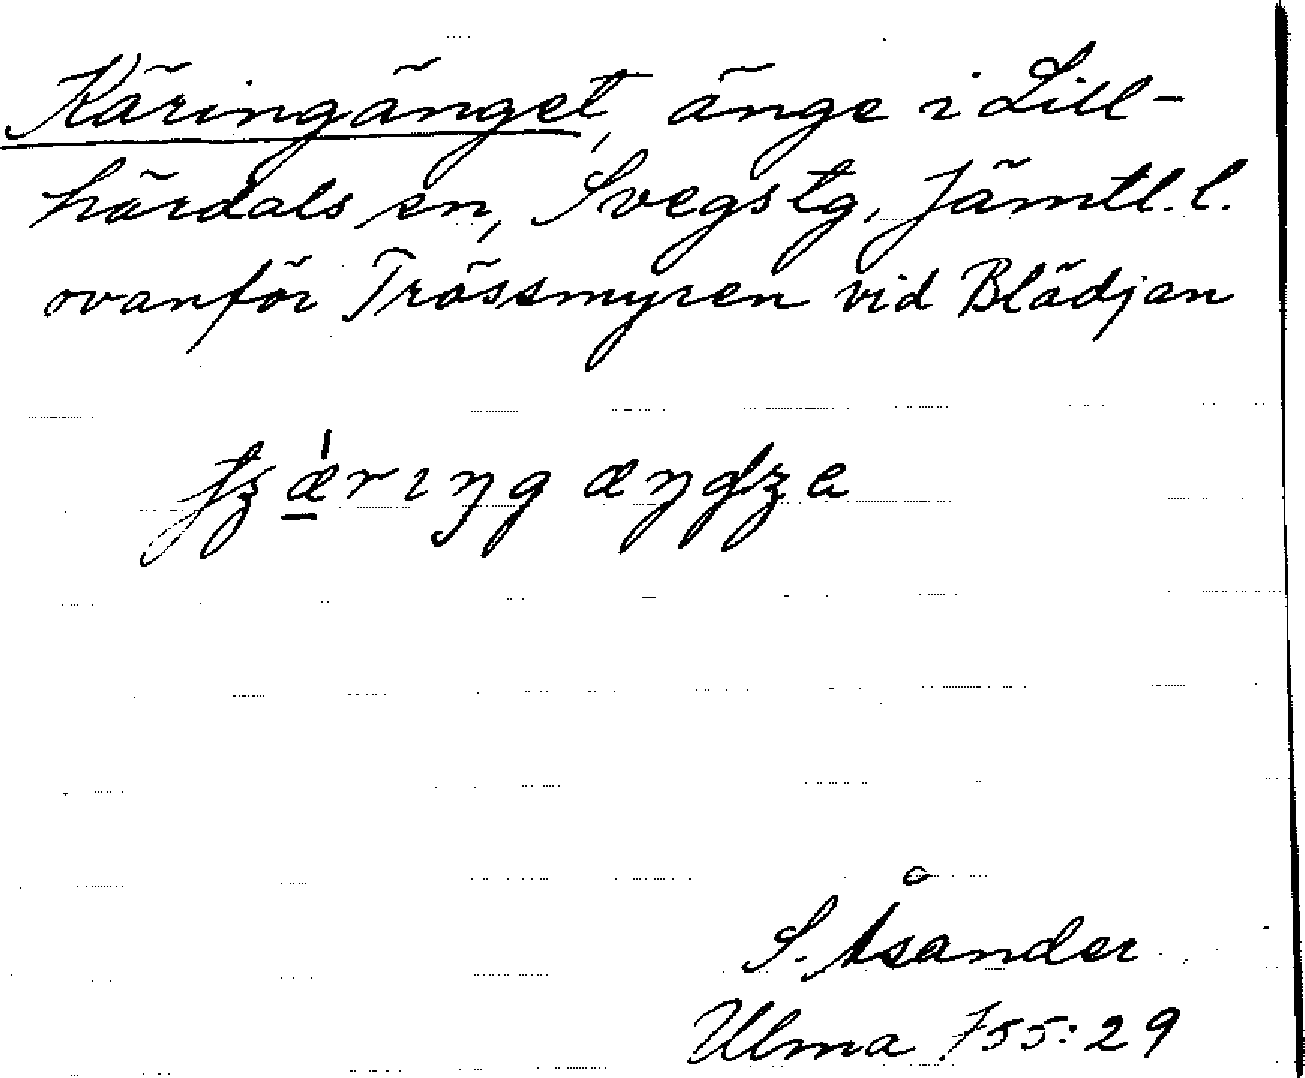 Käringänget, änge i Lill-
härdals sn, Svegs tg, Jämtl. l.
ovanför Trössmyren vid Blädjan
S. Åsander
Ulma 755:29